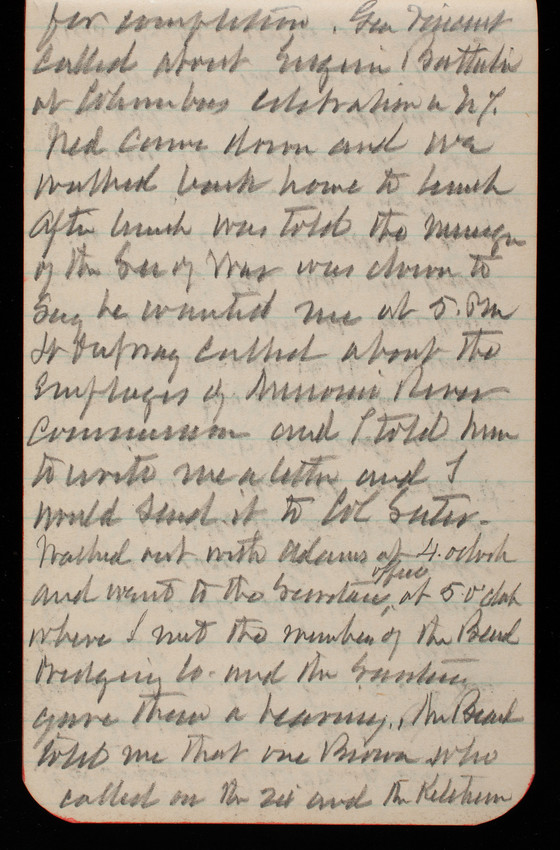 for completion. Geo
called about Engin Battalin
at Columbus celebration in N.Y.
Ned came down and we
walked back home to lunch
After lunch was told the
of the Sec of War was down to
say he wanted me at 5. Pm
called about the
Employes of Missouri River
Commission and I told him
to write me a letter and I
would send it to Col Suter.
Walked out with Adams at 4. oclock
and went to the Secretary office at 5 o'clock
where I met the member of the
Dredging Co. and the Secretary
gave them a hearing. Mr
told me that one Brown who
called on the 21 and the